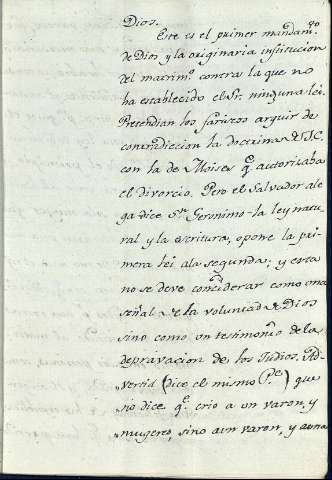 Dios.
Este es el primer mandam.to
de Dios y la originaria institucion
del matrim.o contra la que no
ha establecido el Sr. ninguna lei.
Pretendian los fariseos arguir de
contradiccion la doctrina de J.C.
con la de Moises q.e autorizaba
el divorcio. Pero el Salvador ale
ga dice Sn Geronimo la ley natu
ral y la escritura, opone la pri
mera lei ala segunda; y esta
no se deve considerar como una
señal de la voluntad de Dios
sino como un testimonio de la
depravacion de los Judios. Ad-
vertid (dice el mismo P.e) que
no dice q.e crio a un varon, y
mugeres, sino a un varon, y a una